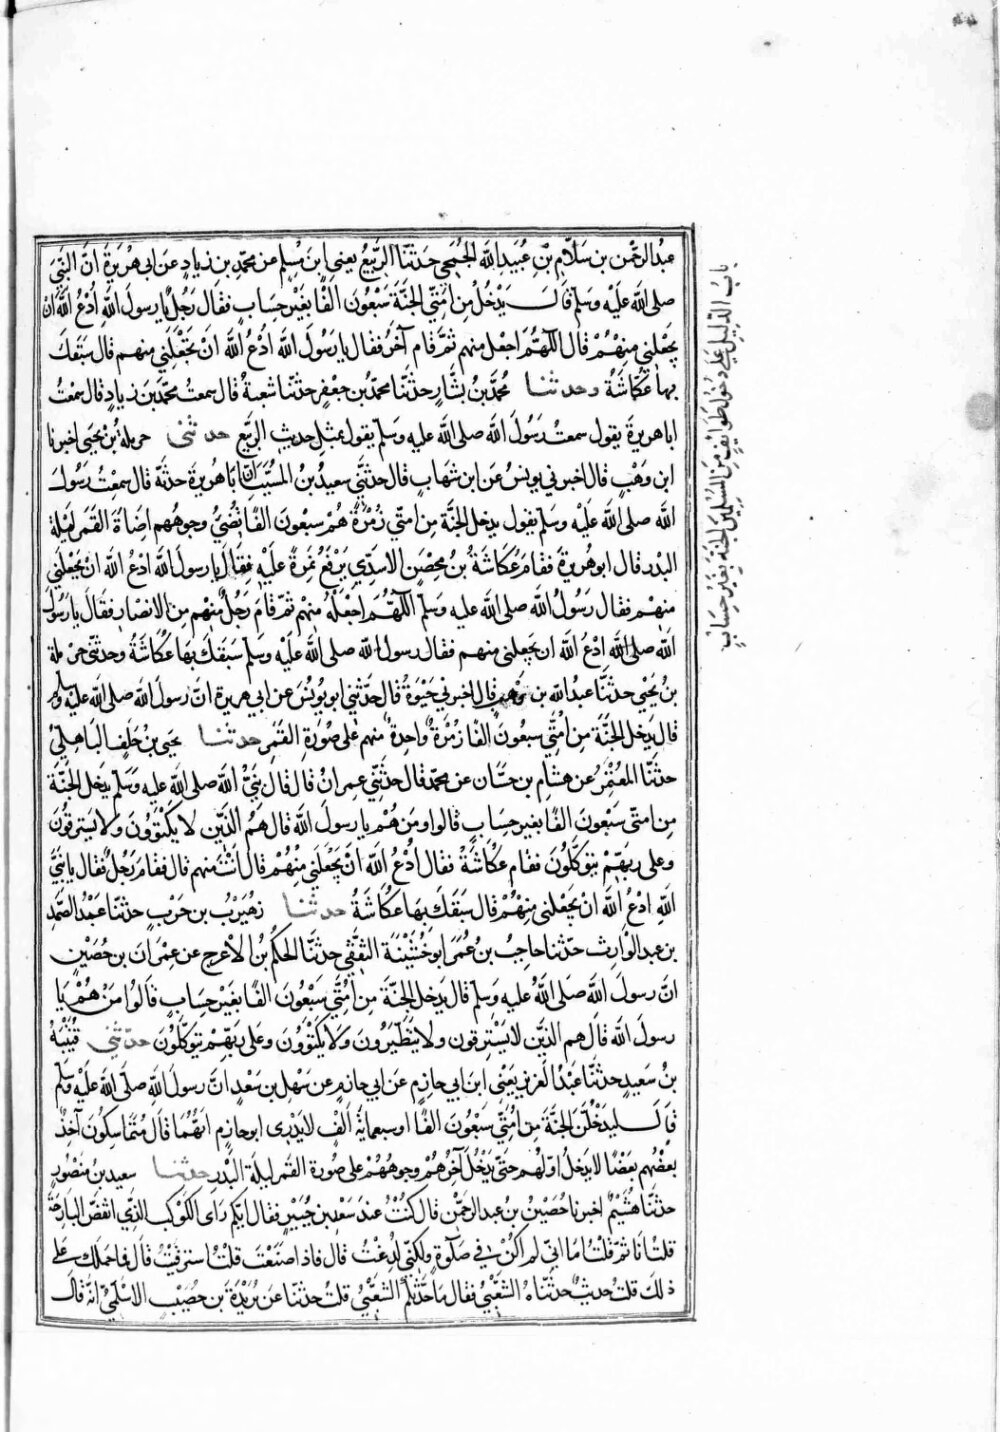 عبدُ الرحمن بن سَلاّم بن عُبَيد الله الجُمَحي حَدثَنا الرَّبيعُ يعني ابنَ مُسْلِم عن محمّد بن زيادٍ عن ابى هُريرة انّ النبيَّ
صلى الله عليه وسلم قال يَدْخُلُ مِن امّتي الجنّة سَبْعُونَ الفًا بغَيْر حِسَابٍ فقال رَجُلٌ يا رسول الله اُدْعُ اللهَ انْ
يجعلنى منهُمْ قال اللهُمَّ اجعل منهم ثمّ قام آخَرُ فقال يا رسُولَ الله اُدْعُ اللهَ انْ يَجْعَلنِي منهم قال سَبَقك
بها عُكّاشَةُ وحدثنا محُمَّدُ بنُ بشّارٍ حدثَنا محمدُ بن جعْفرٍ حدثنا شعبةُ قال سمعتُ محمّدَ بنَ زيادٍ قال سمعتُ
ابا هريرة يقول سمعتُ رسُولَ الله صلى الله عليه وسَلّم يقول بمثلِ حديثِ الربيع حدثنى حرملةُ بنُ يحيى اخبرنا
ابن وَهْبٍ قال اخبرني يونسُ عن ابن شهابٍ قال حدثني سعيدُ بنُ المُسَيِّبِ انّ ابَا هُريرةَ حدثَهُ قال سمعْتُ رَسُولَ
الله صلى الله عليه وسلم يقول يدخل الجنّة مِن امّتي زُمْرَةٌ هُمْ سبعُونَ الفًا تُضيُ وجوهُهم اِضاةَ القَمر لَيلة
البدر قال ابو هُريرة فقام عُكاشَةُ بنُ محِصَنٍ الاسَدِيّ يَرْفَعُ نَمِرةً عليْهِ فقال يا رسولَ الله ادْعُ الله ان يَجْعَلَنِي
منهُمْ فقال رَسُولُ الله صلى الله عليه وسلم اللّهُمّ اجعلهُ منهُمْ ثمّ قام رَجُلٌ منهُم من الانصارِ فقَال يا رَسُولَ
الله صلى الله اِدْعُ الله ان يجعلنى منهم فقال رسول الله صلى الله عليْه وسلم سَبَقَكَ بهَا عُكاشةُ وحدثنى حَرْملة
بنُ يَحيَي حدثنا عبدُ الله بن وَهبٍ قال اخبرني حَيْوَةُ قال حدّثنى ابو يُونُسَ عن ابي هريرة انّ رسول الله صلى الله عليه وسلم
قال يَدخل الجَنّة مِن اُمّتي سبعُونَ الفًا زُمْرَةٌ واحِدةٌ منهم عَلى صُورَةِ القَمَرِ حدثنا يحيى بن خلَفٍ البَاهِليُّ
حدّثَنا المعْتَمِرُ عن هشام بن حسَّان عن محمّد قال حدّثني عمرانُ قال قال نبيُّ الله صلى الله عليه وَسَلّم يدخل الجَنّة
مِن امّتي سَبْعُونَ الفًا بغير حِسَابٍ قالوا ومَن هُمْ يا رسولَ الله قال هَمُ الذّينَ لا يكتَوُونَ ولا يَستَرقُونَ
وعلى ربّهِمْ يتوَكّلُونَ فقام عُكاشَةُ فقال اُدعُ الله انْ يَجْعَلَني مِنْهُمْ قال انْتَ منهم قال فقامَ رَجُلٌ فقال يا نَبيَّ
اللهِ ادْعُ الله انْ يجعلنى مِنْهُمْ قالَ سَبَقَكَ بهَا عكّاشَةُ حدثنا زهُيَرُ بن حَرْبٍ حدثنا عبْدُ الصَّمدِ
بن عبد الوارث حدّثنا حاجِبُ بنُ عُمَرَ ابو خُشَيْنَة الثّقَفيُّ حدثَنَا الحكمُ بنُ الاَعرج عن عِمْرَانَ بن حُصَيْنٍ
انّ رسولَ الله صلى الله عليه وسلم قال يَدخلُ الجَنّةَ مِن اُمّتي سَبْعُونَ الفًا بغيْر حِسَابٍ قَالوُا مَنْ هُمْ يَا
رسولَ الله قال هم الذّينَ لا يَسْتَرِقون ولا يتَطيّرونَ وَلا يَكتَوُونَ وعَلى رَبّهِمْ يتوَكلُونَ حدثني قتُيَبةُ
بنُ سَعيدٍ حدثَنا عَبْدُ العزيزِ يعْنى ابن ابي حازِم عن ابي حازِمٍ عن سَهْلِ بن سَعْدٍ انّ رَسُولَ اللهِ صلى الله عليْه وسلّم
قال ليَدخُلَنَّ الجنّةَ مِن اُمّتي سَبْعُونَ الفًا او سبعمايةُ الفٍ لا يَدْرِى ابو حازِم ايّهُما قالَ مُتَماسِكُونَ آخِذٌ
بعضُهم بعْضًا لا يَدخل اوّلهُم حتى يَدْخُلَ آخِرُهُمْ وجوهُهُمْ على صُورة القَمرِ ليلة البَدْرِ حدثنا سعيد بنُ منصُورٍ
حدثَنا هُشَيْمٌ اخبرنا حُصَيْنُ بنُ عبد الرحْمن قال كُنتُ عندَ سَعيد بن جُبَيْرٍ فقال ايّكم راى الكَوْكبَ الذّي انقضَّ البَارِحَة
قلتُ انا ثُمّ قلتُ اما انّي لم اكُنْ في صَلَاةٍ ولكِنّى لُدغتُ قال فاذا صَنعْتَ قلتُ استَرقَيتُ قال فما حمَلكَ عَلى
ذلكَ قلتُ حديثٌ حدثَناهُ الشَّعْبيُّ فقال ما حَدّثكم الشعْبيُّ قلتُ حدثنَا عن بُريْدَةَ بن حُصَيْبٍ الاَسْلَميِّ انّهُ قالَ
باب الدليل على دخول طوايف من المسلمين الجنة بغير حساب